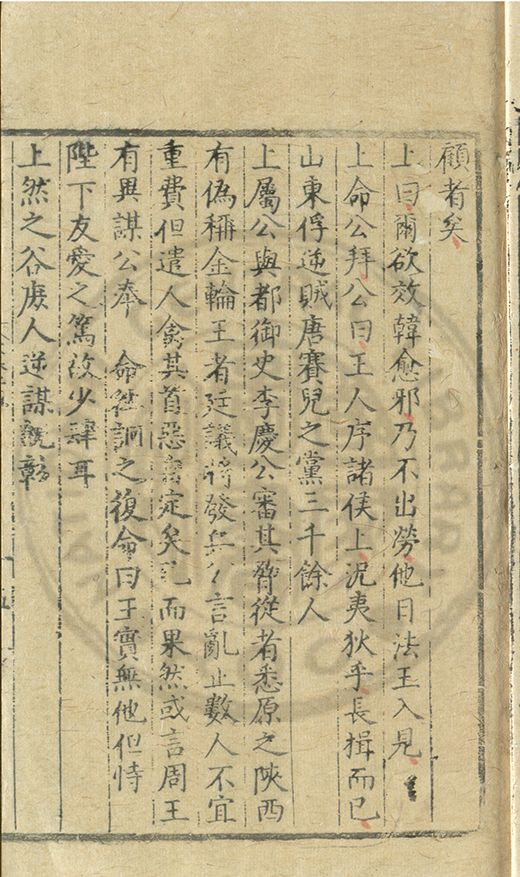 顧者矣
上曰爾欲效韓愈邪乃不出勞他日法王入見
上命公拜公曰王人序諸侯上況夷狄乎長揖而已
山東俘逆賊唐賽兒之黨三千餘人
上屬公與都御史李慶公審其脅從者悉原之陝西
有偽稱金輪王者廷議將發兵公言亂止數人不宜
重費但遣人禽其首惡當定矣已而果然或言周王
有異謀公奉 命徃詗之復命曰王實無他但恃
陛下友愛之篤故少肆耳
上然之谷庶人逆謀既彰